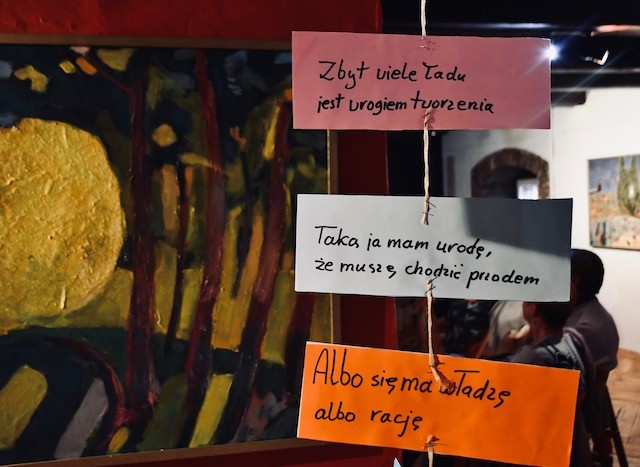 Zbyt wiele ładu
jest wrogiem tworzenia
Taką ja mam urodę,
że muszę chodzić przodem
Albo się ma władzę
albo rację